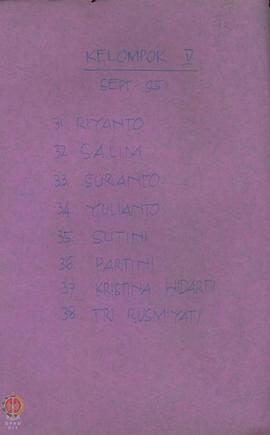 KELOMPOK V
SEPT 95
31 RIYANTO
32 SALIM
33 SURANTO
34 YULIANTO
35. SUTINI
36. PARTINI
37. KRISTINA WIDARTI
38. TRI RUSMIYATI
DPAD
DIY